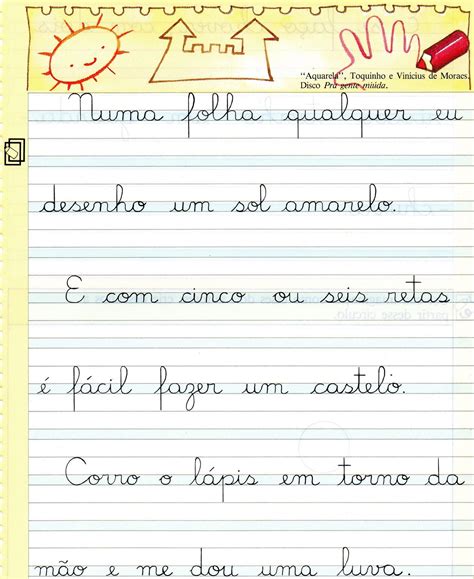 "Aquarela", Toquinho e Vinícius de Moraes.
Disco Pra gente miúda.
Numa folha qualquer eu
desenho um sol amarelo.
E com cinco ou seis retas
é fácil fazer um castelo.
Corro o lápis em torno da
mão e me dou uma luva.